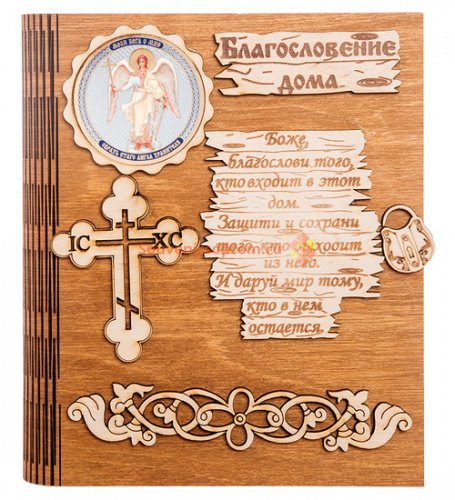 МОЛИ БОГА О МНѢ
ОБРАЗЪ СТАГО АНГЛА ХРАНИТЕЛЯ
Благословение
дома
Боже,
благослови того,
кто входит в этот
дом.
Защити и сохрани
того, кто выходит
из него.
И даруй мир тому,
кто в нем
остается.
IC XC